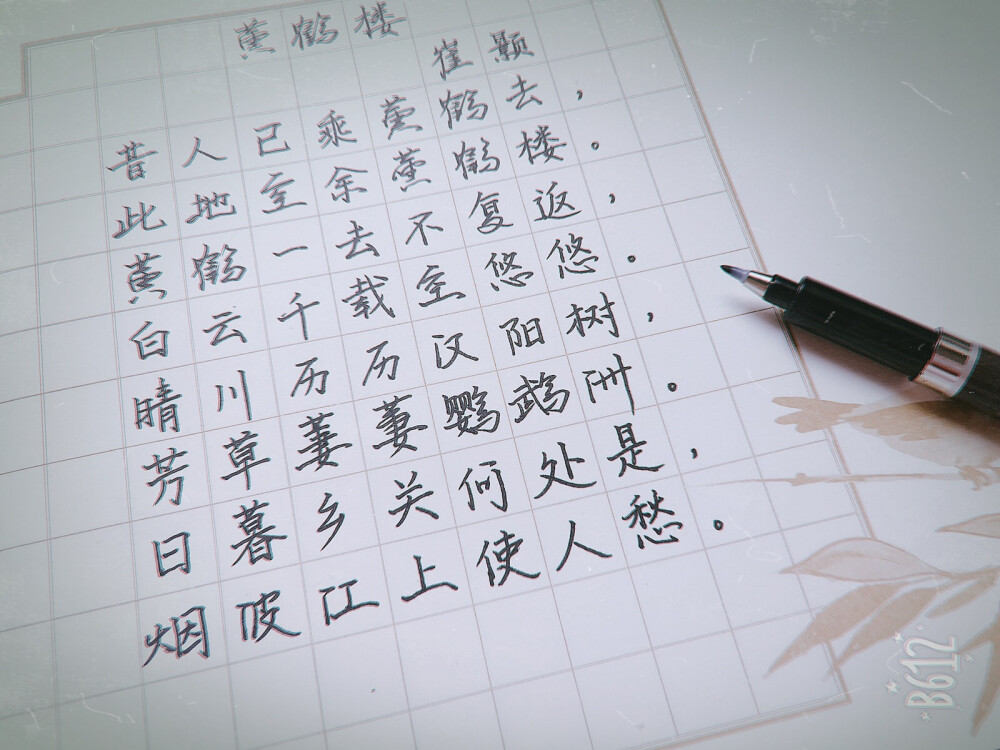 黄鹤楼
崔颢
昔人已乘黄鹤去，
此地空余黄鹤楼。
黄鹤一去不复返，
白云千载空悠悠。
晴川历历汉阳树，
芳草萋萋鹦鹉洲。
日暮乡关何处是，
烟波江上使人愁。
B612